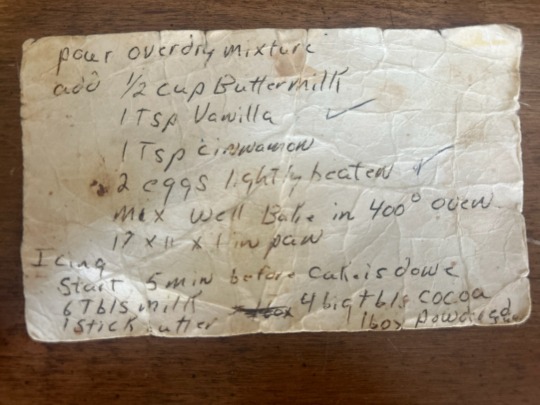 pour over dry mixture
add 1/2 cup Buttermilk
1 Tsp Vanilla
1 Tsp cinnamon
2 eggs lightly beaten
mix well Bake in 400° oven
17 x 11 x 1 in pan
Icing
Start 5 min before cake is done
6 Tbls milk 4 big tbls cocoa
1 Stick utter 1 box